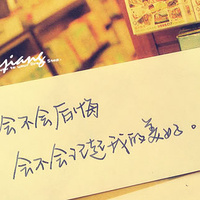 xiang
会不会后悔
会不会记起我的美好。